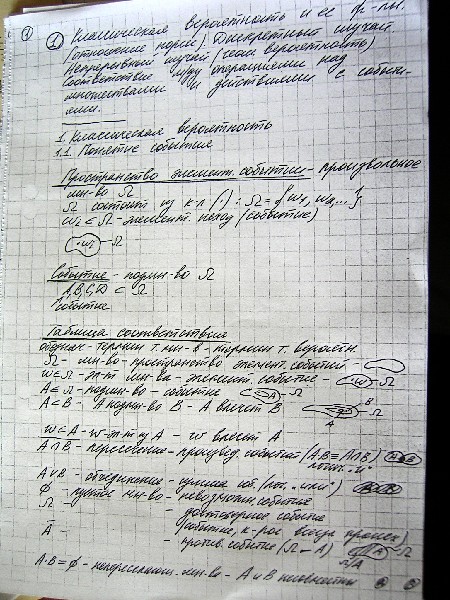 1
1 Классическая вероятность и ее ф-лы.
(отношение норм). Дискретный случай.
Непрерывный случай (геом. вероятность)
Соответствие м/ду операциями над
множествами и действиями с событи-
ями.
1. Классическая вероятность
1.1. Понятие событие
Пространство элемент. событий - произвольное
мн-во Ω
Ω состоит из к.л. (·) : Ω = {ω1, ω2, ...}
ωi ∈ Ω - элемент. исход (событие)
·ωi Ω
Событие - подмн-во Ω
A, B, C, D ⊂ Ω
события
Таблица соответствия
обознач - термин т. мн-в - термин т. вероятн.
Ω - мн-во - пространство элемент. событий
ω ∈ Ω - эл-т мн-ва - элемент. событие - ω Ω
A ⊆ Ω - подмн-во - событие A Ω
A ⊂ B - A подмн-во B - A влечет B A B Ω
ω ⊂ A - ω - эл-т из A - ω влечет A
A∩B - пересечение - произвед. событий (A·B = A∩B)
логич. "и"
A∪B - объединение - сумма соб. (лог. "или")
∅ - пустое мн-во - невозможн. событие
Ω - достоверное событие
(событие, к-рое всегда происх)
Ā - против. событие (Ω - A) A Ω
Ω/A
A·B = ∅ - непересекающ. мн-ва - A и B несовместны